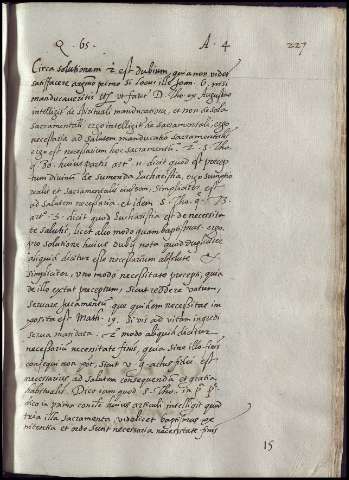 Q. 65. A. 4 227
Circa solutionem 2 est dubium, quia non videt
satisfacere argumento primo si locus ille Joan. 6. nisi
manducaveritis etc. ut fatetur D. Tho. ex Augustino
intelligit de spirituali manducatione, et non de sola
sacramentali ergo intelligit de sacramentali, ergo
necessaria ad salutem manducatio sacramentalis
ergo est necessarium hoc sacramentum. 2. S. Tho.
q. 80. huius partis art. 11 dicit quod est precep
tum divinum de sumenda Eucharistia, ergo sumptio
realis et sacramentalis eiusdem, simpliciter est
ad salutem necessaria. et idem S. Tho. q. 73.
art. 3. dicit quod Eucharistia est de necessita
te salutis, licet alio modo quam baptismus. ergo.
pro solutione huius dubii nota quod dupliciter
aliquid dicitur esse necessarium absolute &
simpliciter, uno modo necessitate precepti, quia
de illo extat preceptum, sicut reddere votum,
servare juramentum que quidem necessitas im
posita est Math. 19. si vis ad vitam ingredi
serva mandata. alio modo aliquid dicitur
necessarium necessitate finis, quia sine illo finis
consequi non pot. sicut actus fidei est
necessarius ad salutem consequendam et gratia
habitualis. Dico tamen quod S. Tho. in
dico in prima concl. huius articuli intelligit quod
tria illa sacramenta, videlicet baptismus pe
nitentia et ordo sunt necessaria necessitate finis
15